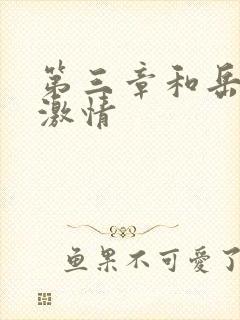 第三章和岳
激情
鱼果不可愛了